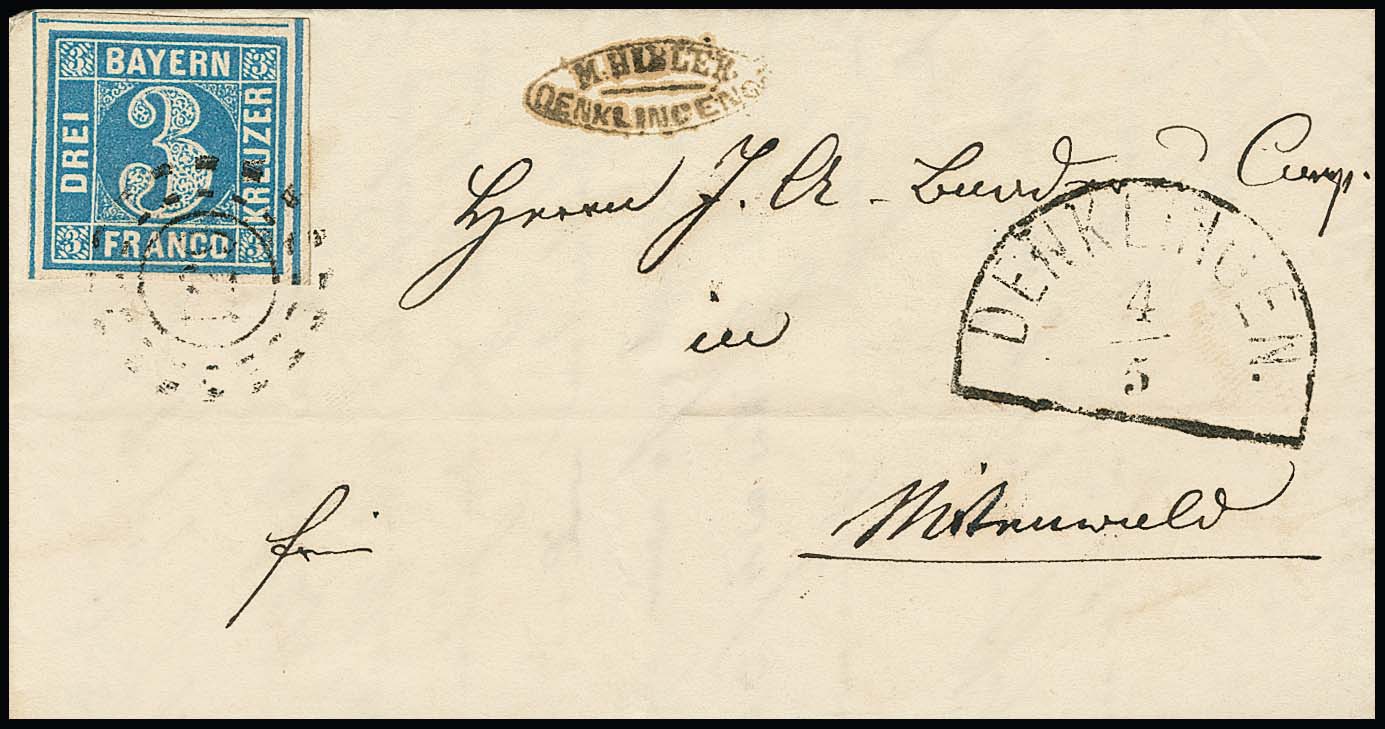 BAYERN
DREI
3
KREUZER
FRANCO
3
3
3
3
DENKLINGEN
Herrn J. A.
Comp.
DENKLINGEN
4
5
in
Mittenwald
frei